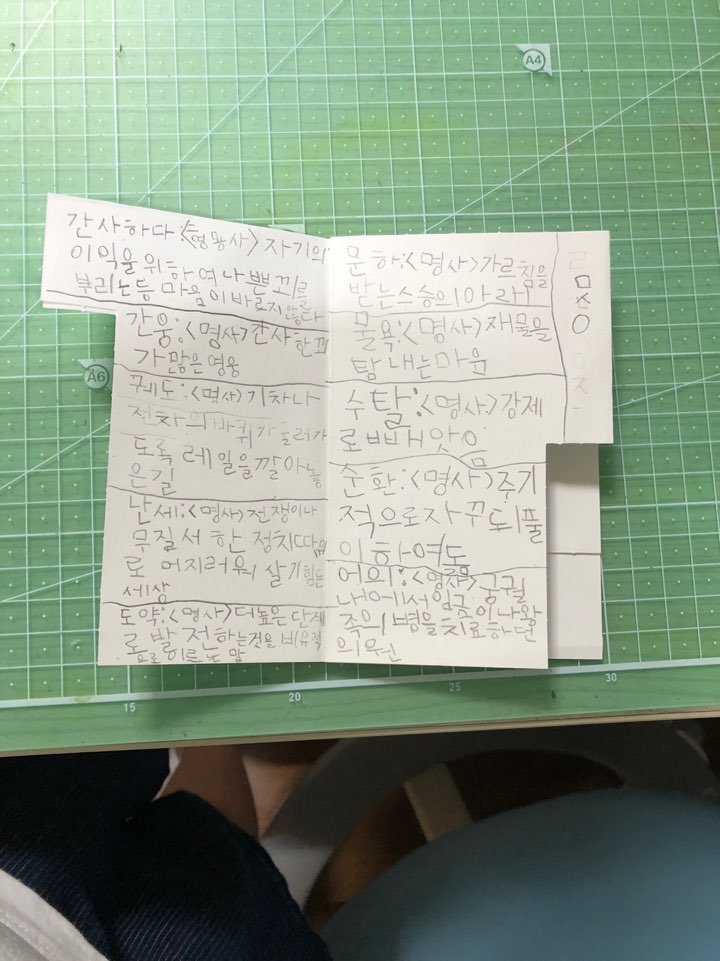 간사하다:<형용사> 자기의
이익을 위하여 나쁜 꾀를
부리는등 마음이 바르지 않다
간웅:<명사>간사한 꾀
가 많은 영웅
궤도:<명사>기차나
전차의 바퀴가 굴러가
도록 레일을 깔아놓
은 길
난세:<명사>전쟁이나
무질서 한 정치따위
로 어지러워 살기 힘든
세상
도약:<명사>더높은 단계
로 발전하는것을 비유적
으로 이르는 말
문하:<명사>가르침을
받는스승의 아래
물욕:<명사>재물을
탐내는마음
수탈:<명사>강제
로 빼앗음
순환:<명사>주기
적으로자꾸되풀
이하여도
어의:<명사>궁궐
내에서임금이나왕
족의 병을 치료하던
의원
ㄹ
ㅁ
ㅊ
ㅇ
A4
A6
15
20
25
30